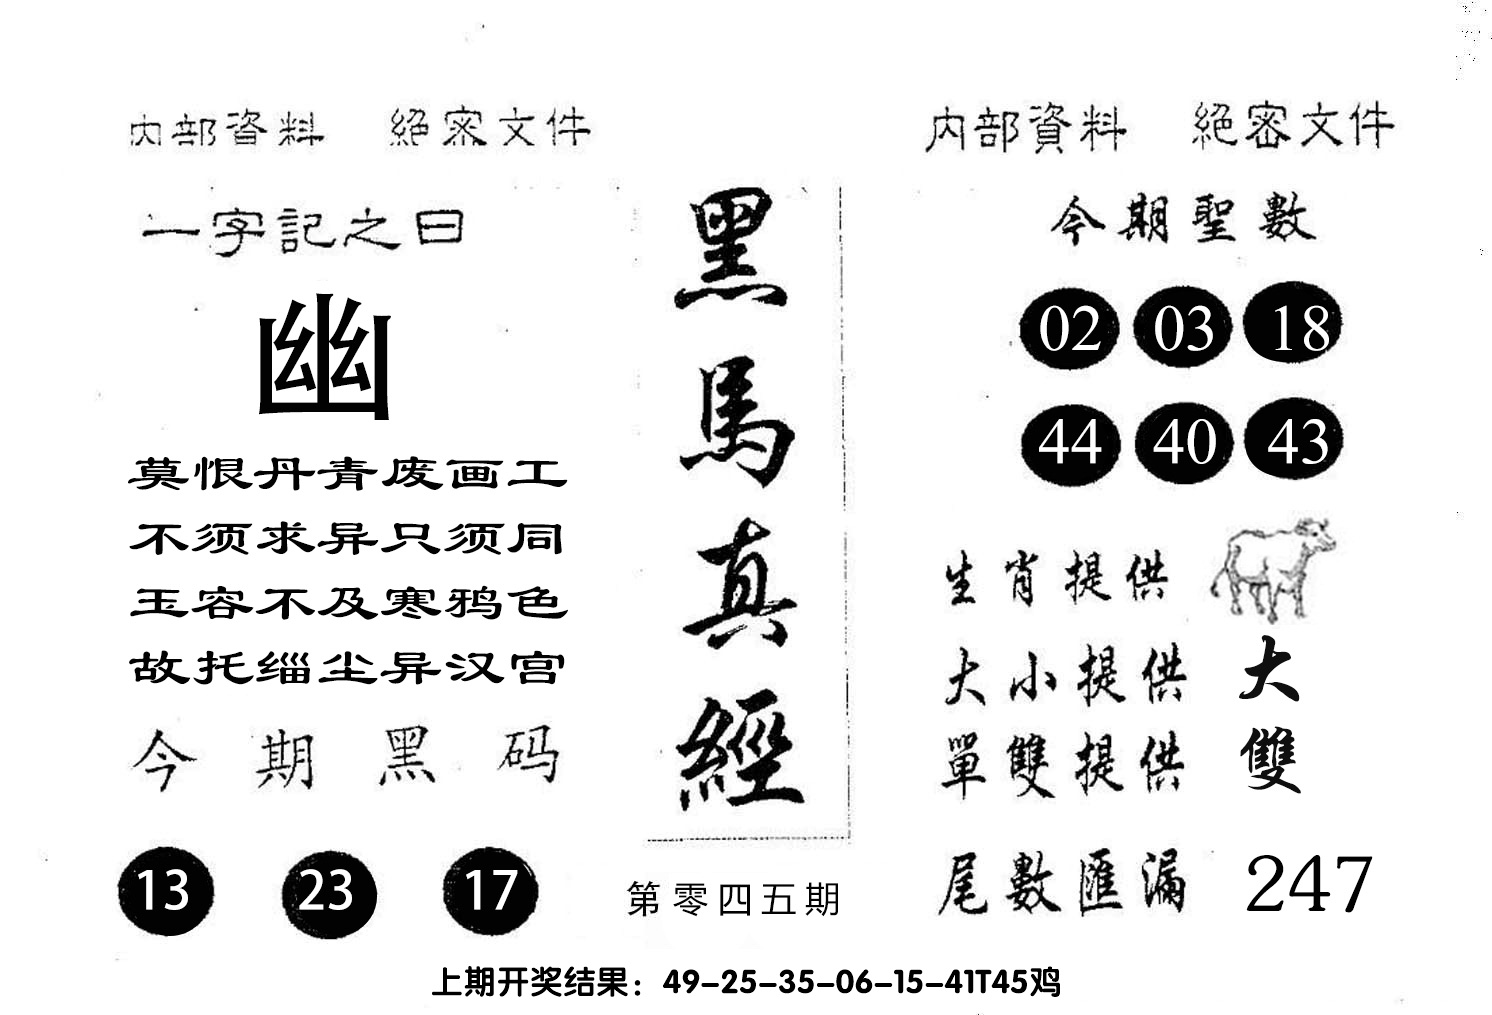 内部資料 絕密文件
一字記之曰
幽
莫恨丹青废画工
不须求异只须同
玉容不及寒鸦色
故托缁尘异汉宫
今期黑码
13 23 17
黑馬真經
第零四五期
内部資料 絕密文件
今期聖數
02 03 18
44 40 43
生肖提供
大小提供 大
單雙提供 雙
尾數匯漏 247
上期开奖结果：49-25-35-06-15-41T45鸡